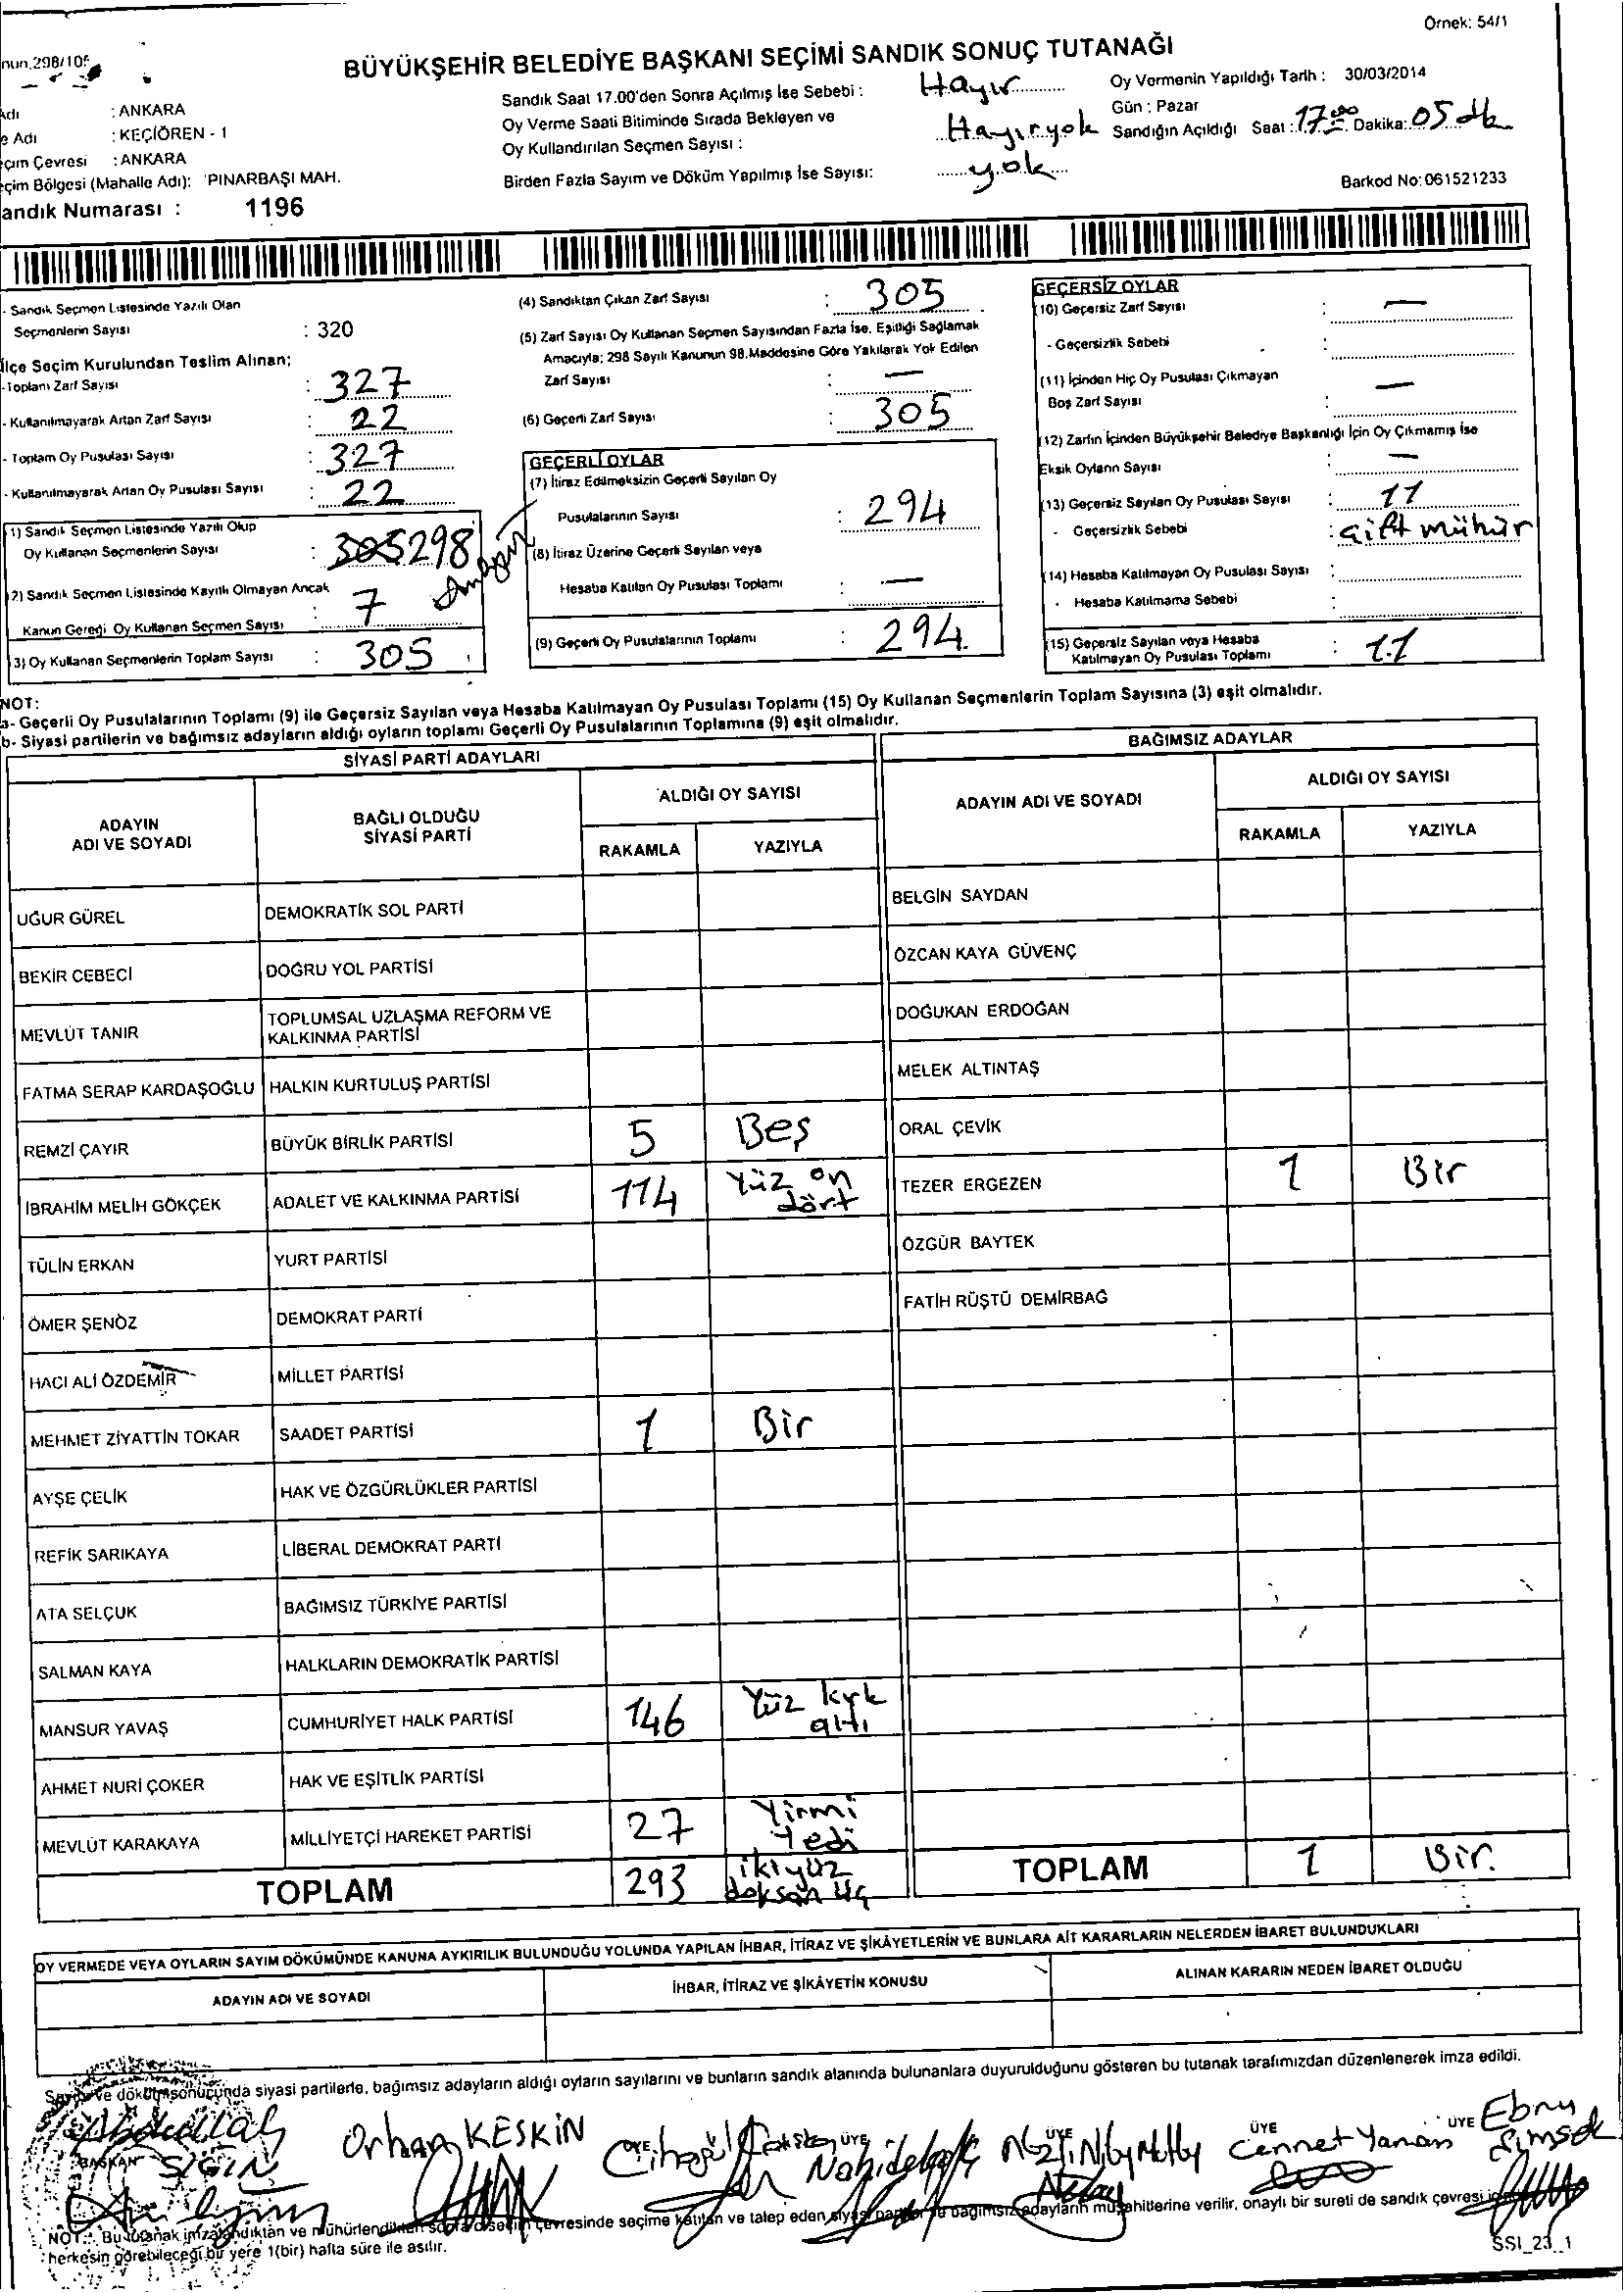 Örnek: 54/1
nun.298/105
BÜYÜKŞEHİR BELEDİYE BAŞKANI SEÇİMİ SANDIK SONUÇ TUTANAĞI
Adı : ANKARA
e Adı : KEÇİÖREN - 1
çim Çevresi : ANKARA
çim Bölgesi (Mahalle Adı): PINARBAŞI MAH.
andık Numarası : 1196
Sandık Saat 17.00'den Sonra Açılmış İse Sebebi : Hayır
Oy Verme Saati Bitiminde Sırada Bekleyen ve
Oy Kullandırılan Seçmen Sayısı : Hayır yok
Birden Fazla Sayım ve Döküm Yapılmış İse Sayısı: yok
Oy Vermenin Yapıldığı Tarih : 30/03/2014
Gün : Pazar
Sandığın Açıldığı Saat : 17:00 Dakika: 05 dk
Barkod No: 061521233
- Sandık Seçmen Listesinde Yazılı Olan
Seçmenlerin Sayısı : 320
İlçe Seçim Kurulundan Teslim Alınan;
-Toplam Zarf Sayısı : 327
- Kullanılmayarak Artan Zarf Sayısı : 22
- Toplam Oy Pusulası Sayısı : 327
- Kullanılmayarak Artan Oy Pusulası Sayısı : 22
1) Sandık Seçmen Listesinde Yazılı Olup
Oy Kullanan Seçmenlerin Sayısı : 305 298
2) Sandık Seçmen Listesinde Kayıtlı Olmayan Ancak
Kanun Gereği Oy Kullanan Seçmen Sayısı : 7
3) Oy Kullanan Seçmenlerin Toplam Sayısı : 305
(4) Sandıktan Çıkan Zarf Sayısı : 305
(5) Zarf Sayısı Oy Kullanan Seçmen Sayısından Fazla İse, Eşitliği Sağlamak
Amacıyla; 298 Sayılı Kanunun 98.Maddesine Göre Yakılarak Yok Edilen
Zarf Sayısı : —
(6) Geçerli Zarf Sayısı : 305
GEÇERLİ OYLAR
(7) İtiraz Edilmeksizin Geçerli Sayılan Oy
Pusulalarının Sayısı : 294
(8) İtiraz Üzerine Geçerli Sayılan veya
Hesaba Katılan Oy Pusulası Toplamı : —
(9) Geçerli Oy Pusulalarının Toplamı : 294
GEÇERSİZ OYLAR
(10) Geçersiz Zarf Sayısı : —
- Geçersizlik Sebebi :
(11) İçinden Hiç Oy Pusulası Çıkmayan
Boş Zarf Sayısı : —
(12) Zarfın İçinden Büyükşehir Belediye Başkanlığı İçin Oy Çıkmamış İse
Eksik Oyların Sayısı : —
(13) Geçersiz Sayılan Oy Pusulası Sayısı : 11
- Geçersizlik Sebebi : çift mühür
(14) Hesaba Katılmayan Oy Pusulası Sayısı :
- Hesaba Katılmama Sebebi :
(15) Geçersiz Sayılan veya Hesaba
Katılmayan Oy Pusulası Toplamı : 11
NOT:
a- Geçerli Oy Pusulalarının Toplamı (9) ile Geçersiz Sayılan veya Hesaba Katılmayan Oy Pusulası Toplamı (15) Oy Kullanan Seçmenlerin Toplam Sayısına (3) eşit olmalıdır.
b- Siyasi partilerin ve bağımsız adayların aldığı oyların toplamı Geçerli Oy Pusulalarının Toplamına (9) eşit olmalıdır.
SİYASİ PARTİ ADAYLARI
ADAYIN ADI VE SOYADI BAĞLI OLDUĞU SİYASİ PARTİ ALDIĞI OY SAYISI
RAKAMLA YAZIYLA
UĞUR GÜREL DEMOKRATİK SOL PARTİ
BEKİR CEBECİ DOĞRU YOL PARTİSİ
MEVLÜT TANIR TOPLUMSAL UZLAŞMA REFORM VE
KALKINMA PARTİSİ
FATMA SERAP KARDAŞOĞLU HALKIN KURTULUŞ PARTİSİ
REMZİ ÇAYIR BÜYÜK BİRLİK PARTİSİ 5 Beş
İBRAHİM MELİH GÖKÇEK ADALET VE KALKINMA PARTİSİ 114 Yüz on dört
TÜLİN ERKAN YURT PARTİSİ
ÖMER ŞENÖZ DEMOKRAT PARTİ
HACI ALİ ÖZDEMİR MİLLET PARTİSİ
MEHMET ZİYATTİN TOKAR SAADET PARTİSİ 1 Bir
AYŞE ÇELİK HAK VE ÖZGÜRLÜKLER PARTİSİ
REFİK SARIKAYA LİBERAL DEMOKRAT PARTİ
ATA SELÇUK BAĞIMSIZ TÜRKİYE PARTİSİ
SALMAN KAYA HALKLARIN DEMOKRATİK PARTİSİ
MANSUR YAVAŞ CUMHURİYET HALK PARTİSİ 146 Yüz kırk altı
AHMET NURİ ÇOKER HAK VE EŞİTLİK PARTİSİ
MEVLÜT KARAKAYA MİLLİYETÇİ HAREKET PARTİSİ 27 Yirmi Yedi
TOPLAM 293 ikiyüz doksan üç
BAĞIMSIZ ADAYLAR
ADAYIN ADI VE SOYADI ALDIĞI OY SAYISI
RAKAMLA YAZIYLA
BELGİN SAYDAN
ÖZCAN KAYA GÜVENÇ
DOĞUKAN ERDOĞAN
MELEK ALTINTAŞ
ORAL ÇEVİK
TEZER ERGEZEN 1 Bir
ÖZGÜR BAYTEK
FATİH RÜŞTÜ DEMİRBAĞ
TOPLAM 1 Bir.
OY VERMEDE VEYA OYLARIN SAYIM DÖKÜMÜNDE KANUNA AYKIRILIK BULUNDUĞU YOLUNDA YAPILAN İHBAR, İTİRAZ VE ŞİKÂYETLERİN VE BUNLARA AİT KARARLARIN NELERDEN İBARET BULUNDUKLARI
ADAYIN ADI VE SOYADI İHBAR, İTİRAZ VE ŞİKÂYETİN KONUSU ALINAN KARARIN NEDEN İBARET OLDUĞU
Sayım ve döküm sonucunda siyasi partilerle, bağımsız adayların aldığı oyların sayılarını ve bunların sandık alanında bulunanlara duyurulduğunu gösteren bu tutanak tarafımızdan düzenlenerek imza edildi.
Abdullah Orhan KESKİN Cennet Yaman Ebru Şimşek
BAŞKAN ÜYE ÜYE ÜYE ÜYE ÜYE
NOT: Bu tutanak imzalandıktan ve mühürlendikten sonra o seçim çevresinde seçime katılan ve talep eden siyasi partiler ile bağımsız adayların müşahitlerine verilir, onaylı bir sureti de sandık çevresi
herkesin görebileceği bir yere 1(bir) hafta süre ile asılır.
SSI_23_1